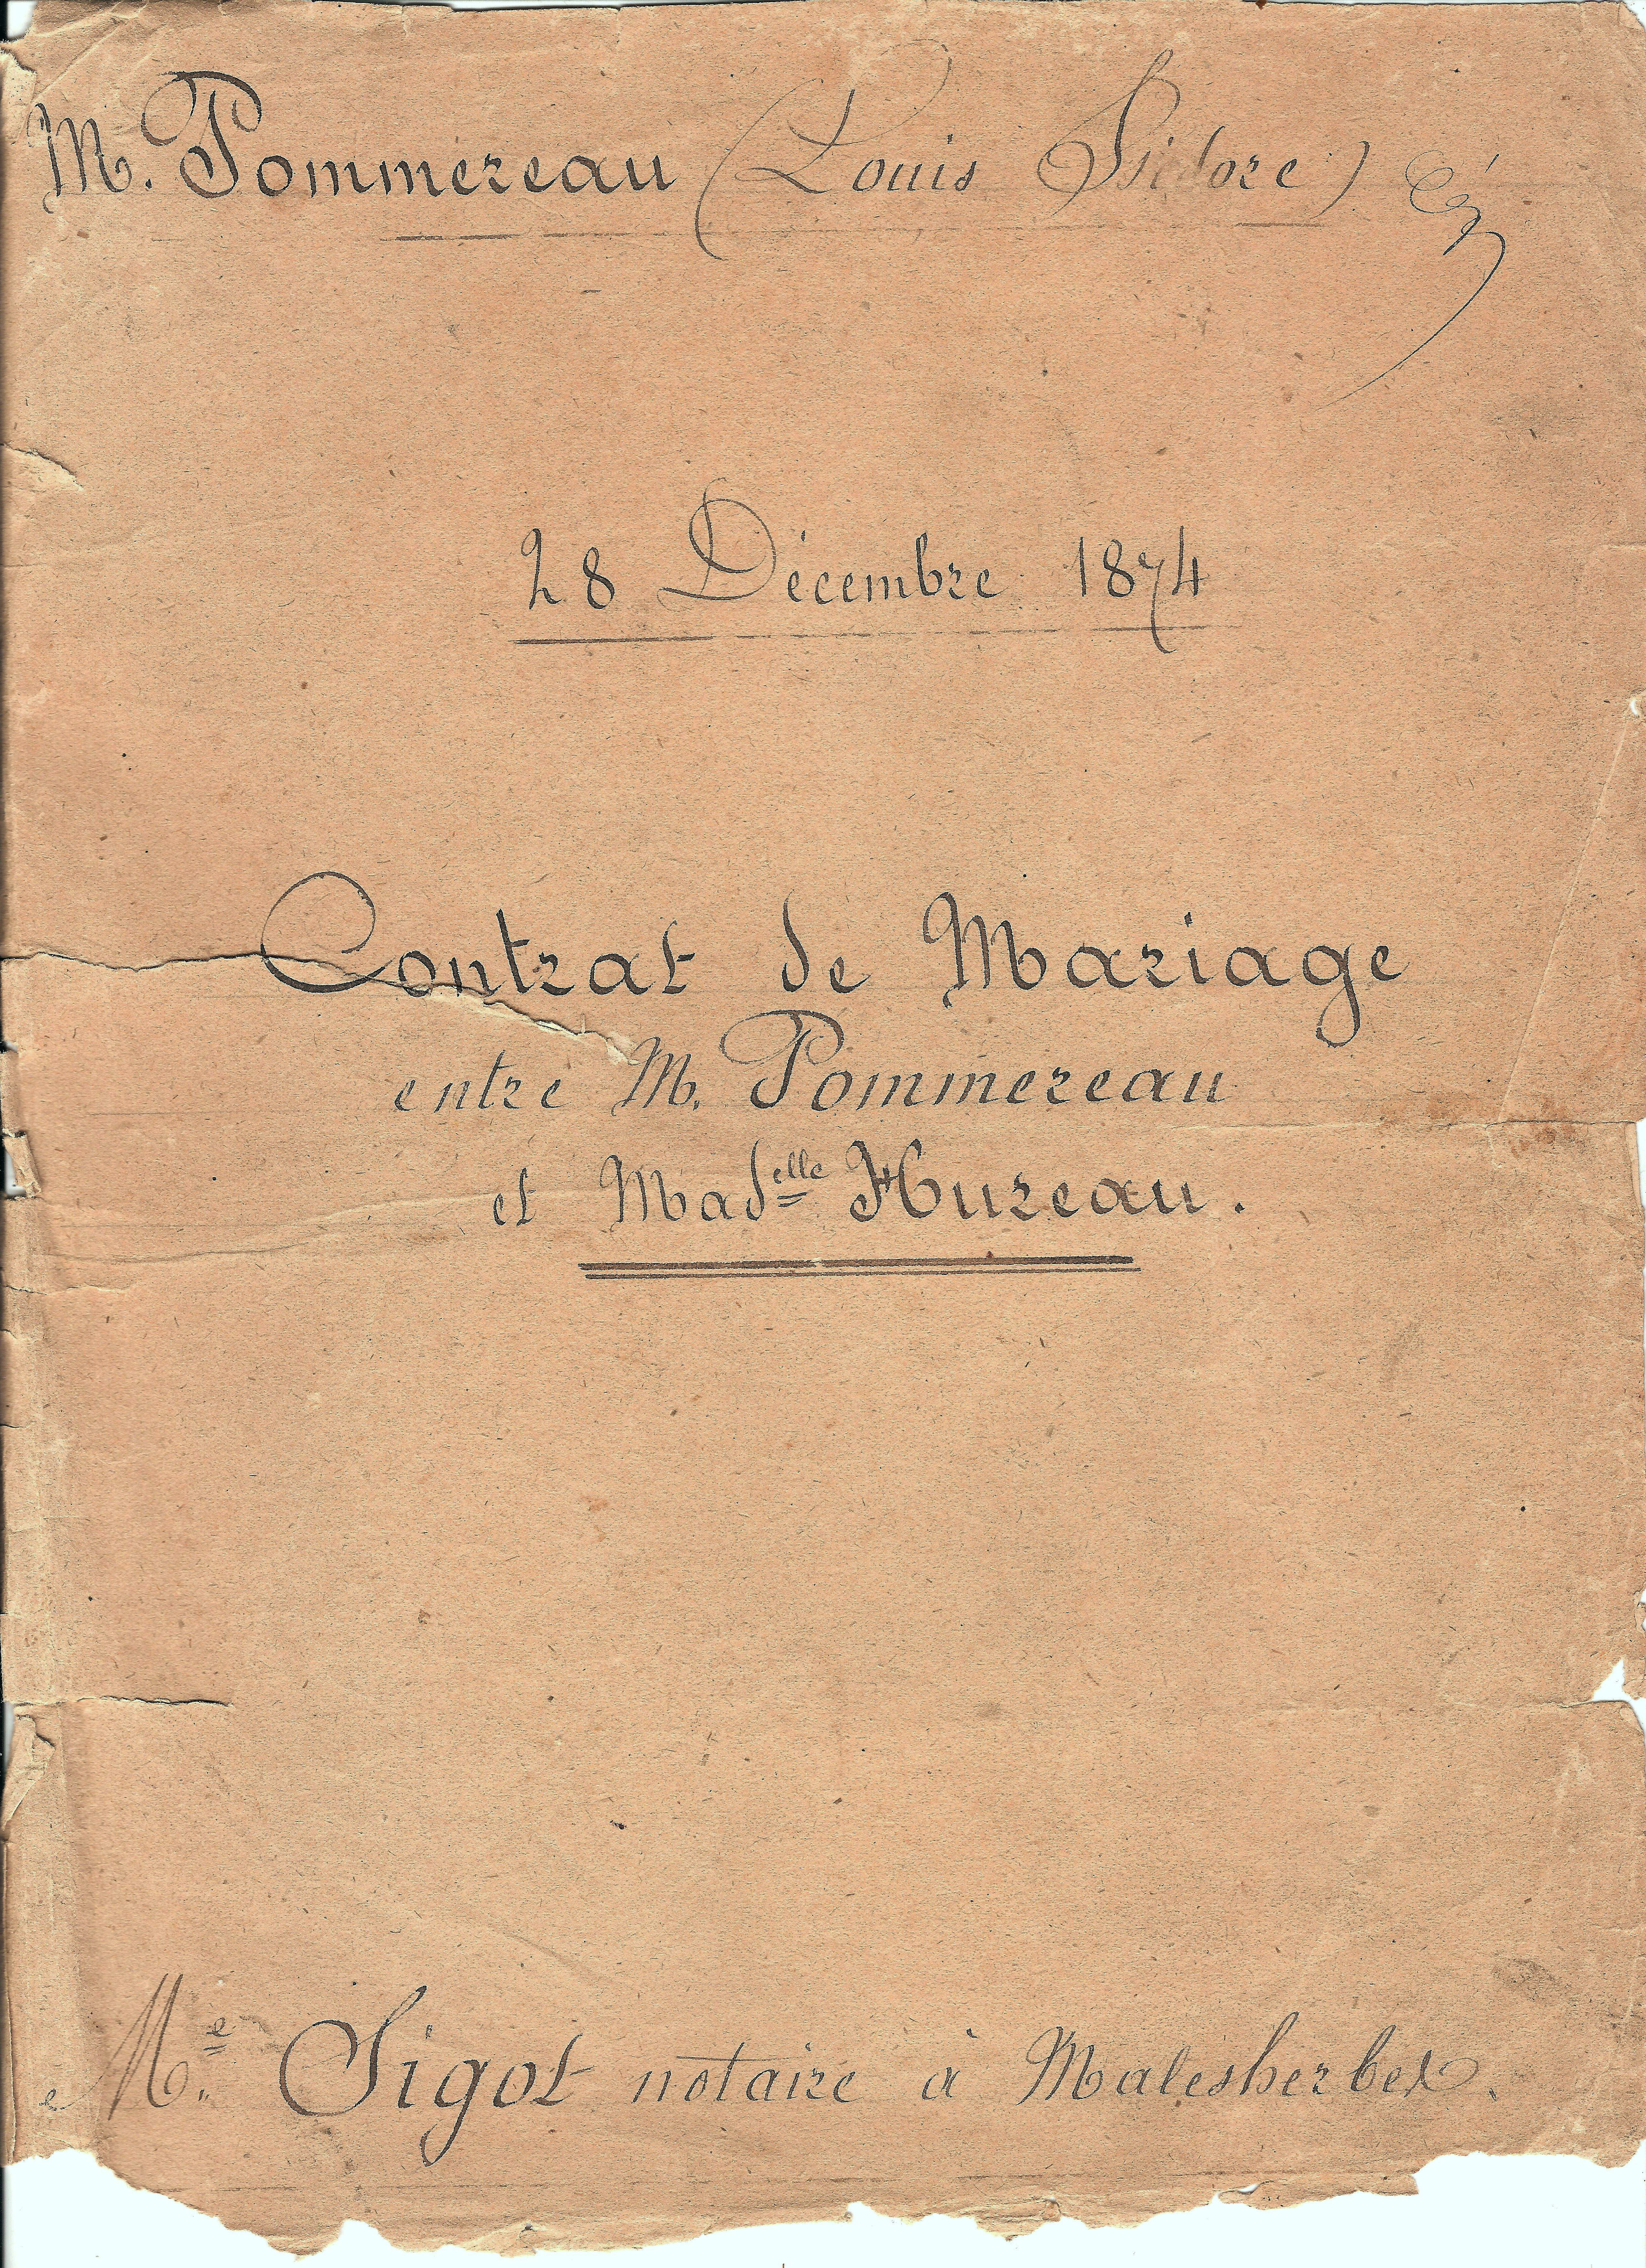 M. Pommereau (Louis Isidore)
28 Décembre 1874
Contrat de Mariage
entre M. Pommereau
et Madelle Hureau.
Me. Sigot notaire à Malesherbes.